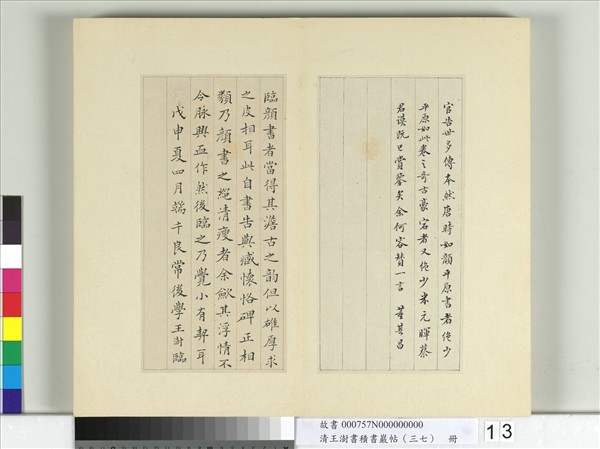 官告世多傳本然唐時如顏平原書者絶少
平原如此卷之奇古豪宕者又絶少米元暉蔡
君謨既已賞鑒矣余何容贊一言 董其昌
臨顏書者當得其澹古之韵但以雄厚求
之皮相耳此自書告與臧懷恪碑正相
類乃顏書之絕清瘦者余歛其浮情不
令脉興五作然後臨之乃覺小有契耳
戊申夏四月端午良常後學王澍臨
故書 000757N000000000
清王澍書積書巖帖(三七) 冊
13